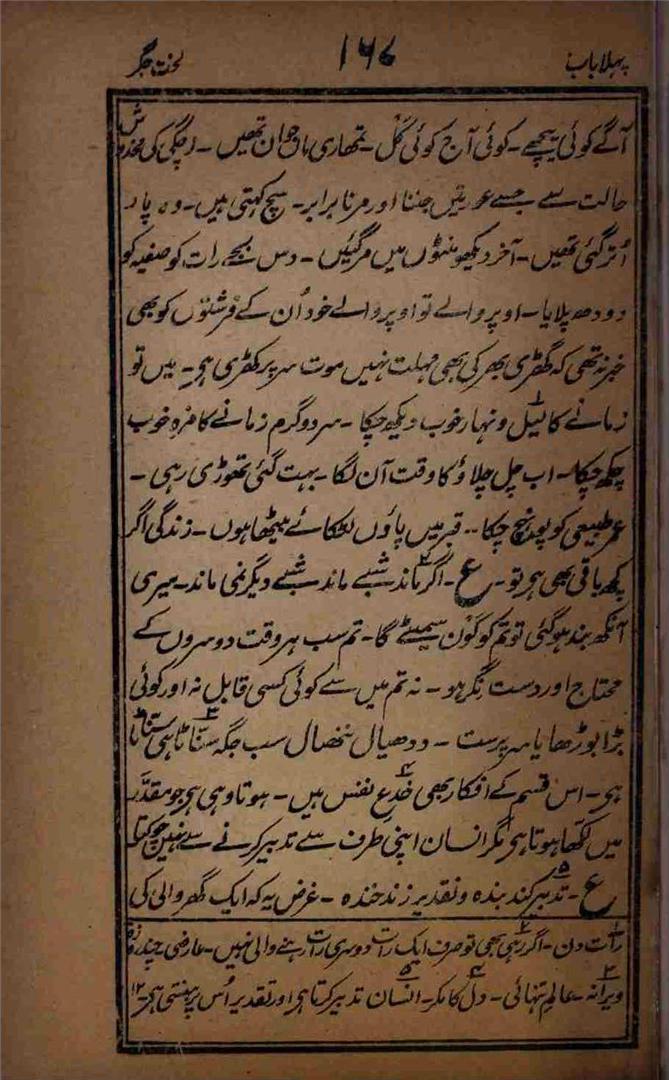 پہلا باب ۱۶۷ لخت جگر
آگے کوئی پیچھے۔ کوئی آج کوئی کل۔ تمھاری ماں جوان تھیں۔ زچگی کی مخدوش
حالت سے جسے عورتیں جننا اور مرنا برابر۔ سچ کہتی ہیں۔ وہ پار
اُتر گئی تھیں۔ آخر دیکھو منٹوں میں مر گئیں۔ دس بجے رات کو صفیہ کو
دودھ پلایا۔ اوپر والے تو اوپر والے خود اُن کے فرشتوں کو بھی
خبر نہ تھی کہ گھڑی بھر کی بھی مہلت نہیں موت سر پر کھڑی ہی۔ میں تو
زمانے کا لیل و نہار خوب دیکھ چکا۔ سرد و گرم زمانے کا مزہ خوب
چکھ چکا۔ اب چل چلاؤ کا وقت آن لگا۔ بہت گئی تھوڑی رہی۔
عمر طبیعی کو پہونچ چکا۔۔ قبر میں پاؤں لٹکائے بیٹھا ہوں۔ زندگی اگر
کچھ باقی بھی ہی تو۔ ع۔ اگر ماند شبے ماند شبے دیگر نمی ماند۔ میری
آنکھ بند ہو گئی تو تم کو کون سمیٹے گا۔ تم سب ہر وقت دوسروں کے
محتاج اور دست نگر ہو۔ نہ تم میں سے کوئی کسی قابل نہ اور کوئی
بڑا بوڑھا یا سر پرست۔ ددھیال ننھیال سب جگہ سنّاٹا ہی سنّاٹا
ہی۔ اس قسم کے افکار بھی خدع نفس ہیں۔ ہوتا وہی ہی جو مقدّر
میں لکھا ہوتا ہی مگر انسان اپنی طرف سے تدبیر کرنے سے نہیں چوکتا
ع۔ تدبیر کند بندہ و تقدیر زند خندہ۔ غرض یہ کہ ایک گھر والی کی
۱ رات دن۔ ۲ اگر رہی بھی تو صرف ایک رات دوسری رات رہنے والی نہیں۔ عارضی چند روزہ
۳ ویرانہ۔ عالم تنہائی۔ ۴ دل کا مکر۔ ۵ انسان تدبیر کرتا ہی اور تقدیر اُس پر ہنستی ہی ۱۲